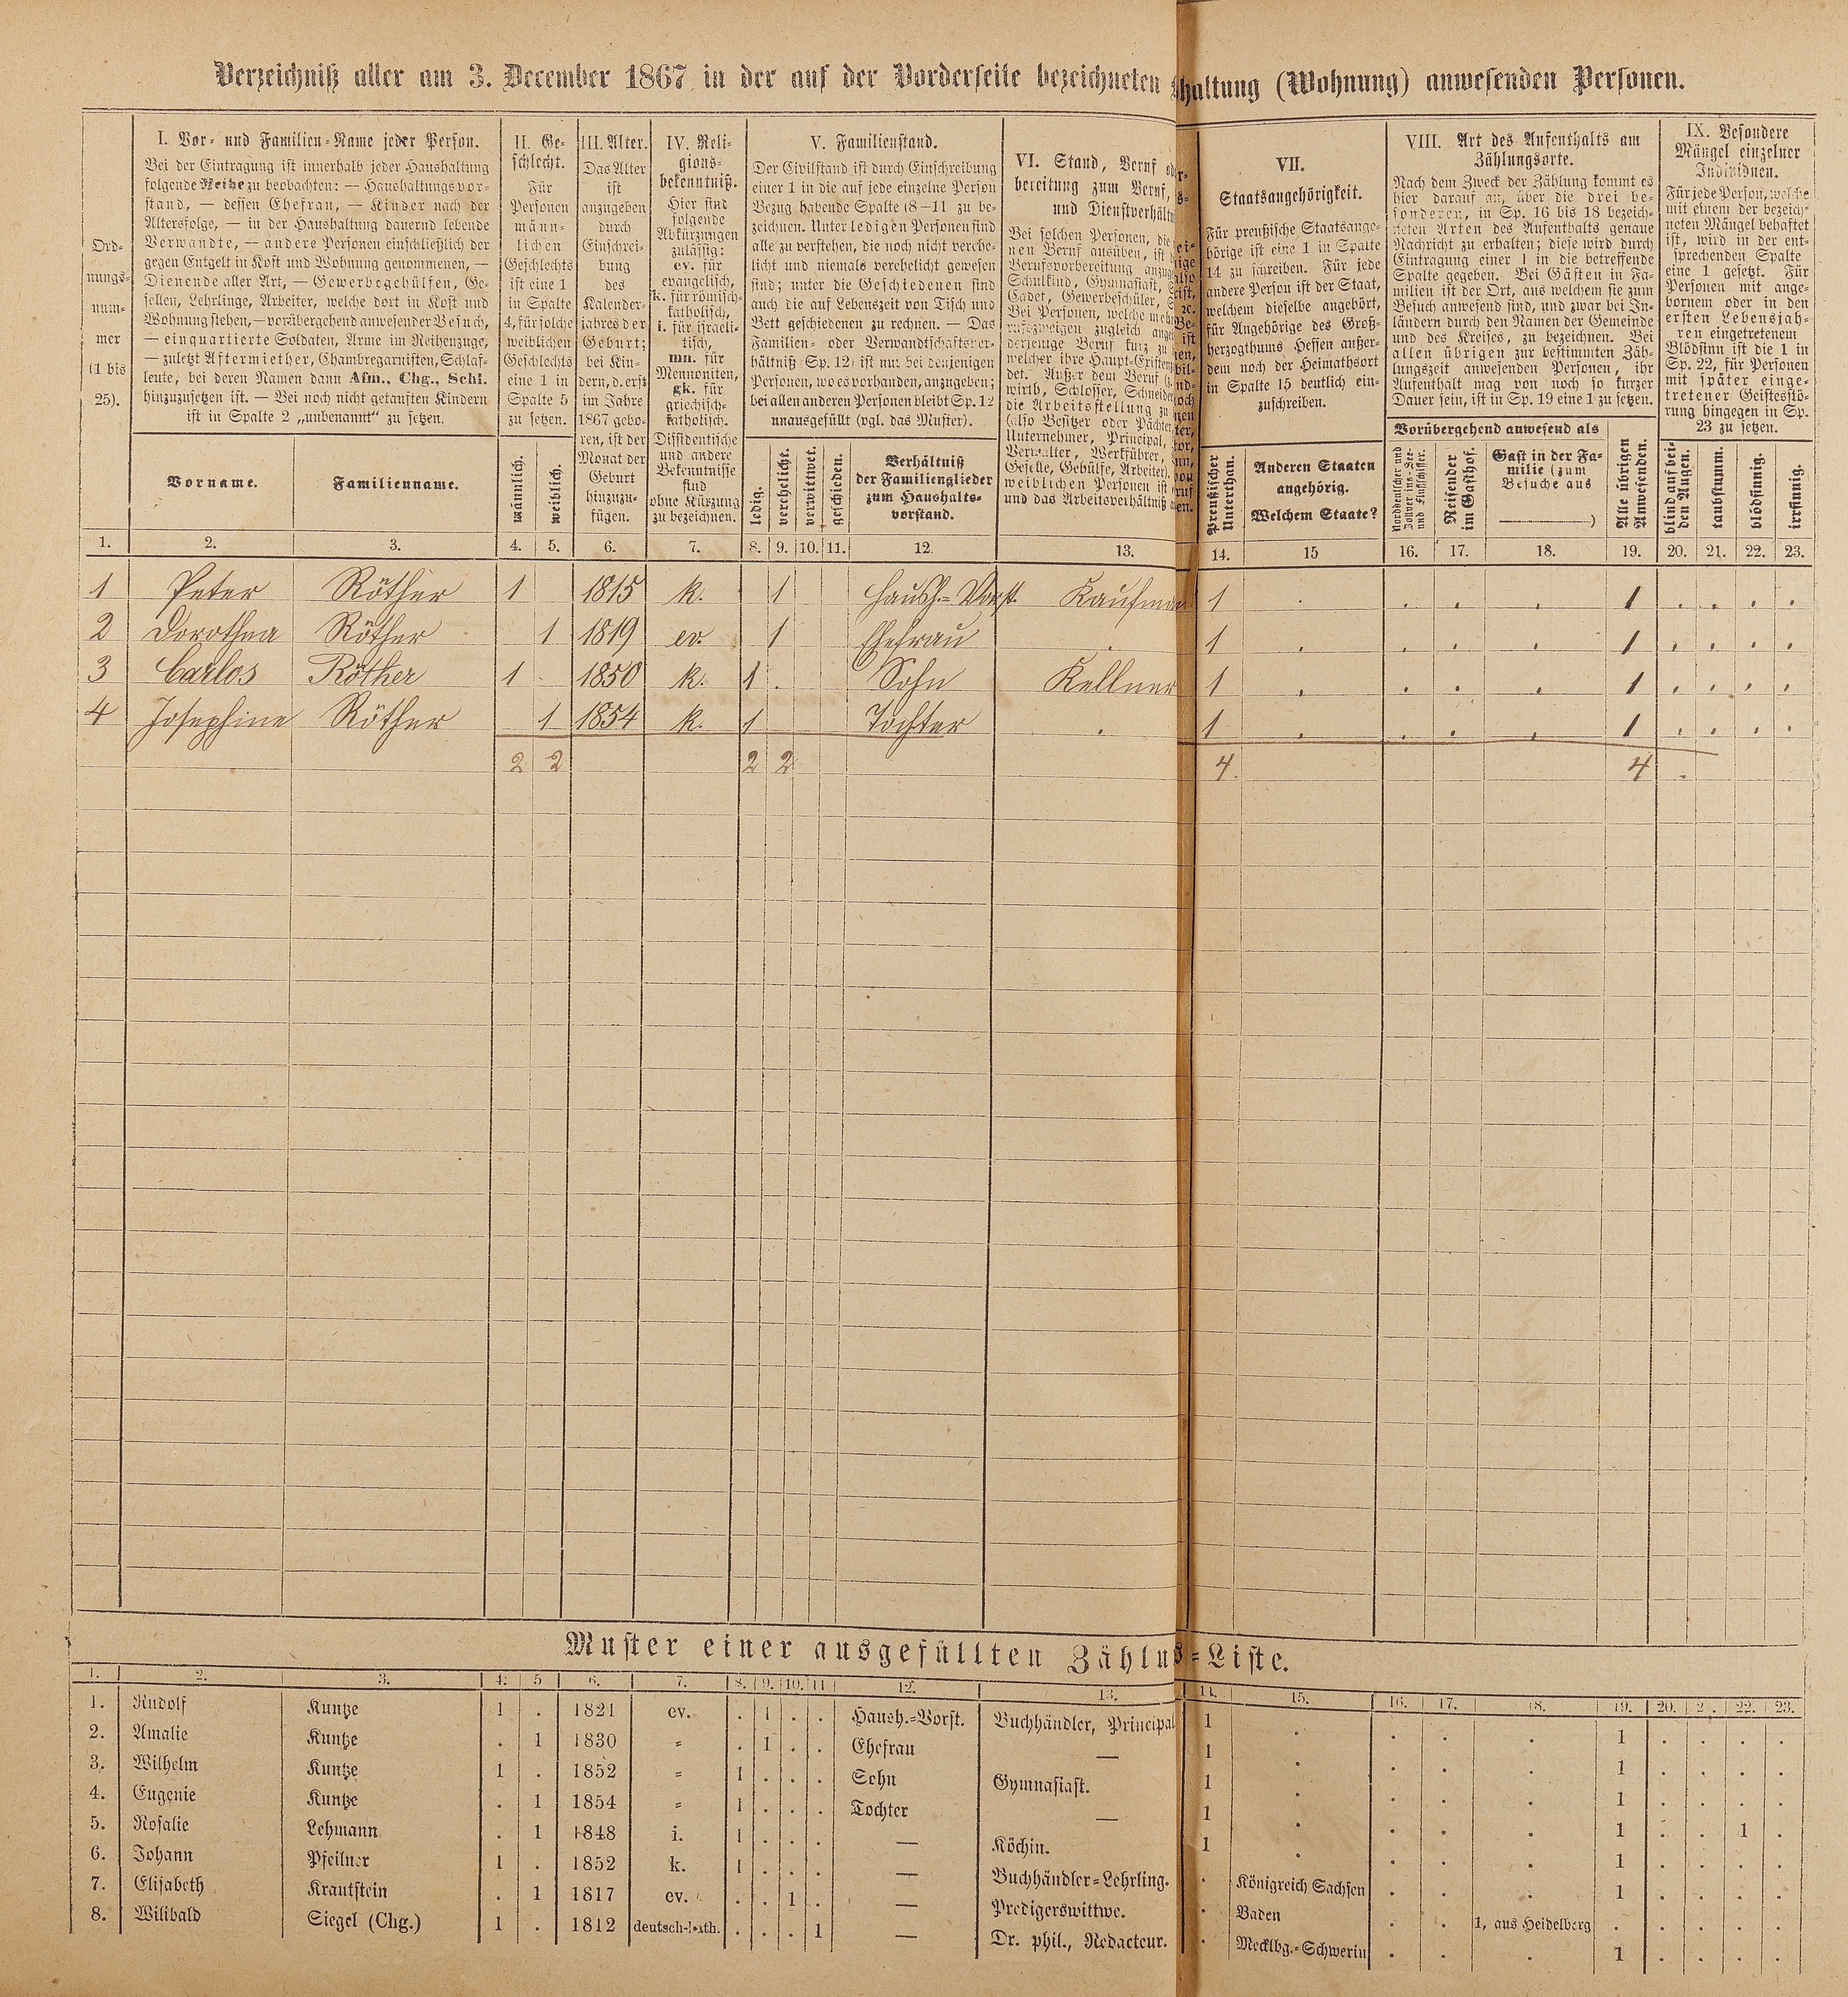 Verzeichniß aller am 3. December 1867 in der auf der Vorderseite bezeichneten haltung (Wohnung) anwesenden Personen.
Ord-
nungs-
num-
mer
(1 bis
25).
I. Vor- und Familien-Name jeder Person.
Bei der Eintragung ist innerhalb jeder Haushaltung
folgende Reihe zu beobachten: — Haushaltungsvor-
stand, — dessen Ehefrau, — Kinder nach der
Altersfolge, — in der Haushaltung dauernd lebende
Verwandte, — andere Personen einschließlich der
gegen Entgelt in Kost und Wohnung genommenen, —
Dienende aller Art, — Gewerbegehülfen, Ge-
sellen, Lehrlinge, Arbeiter, welche dort in Kost und
Wohnung stehen, — vorübergehend anwesender Besuch,
— einquartierte Soldaten, Arme im Reihenzuge,
— zuletzt Aftermiether, Chambregarnisten, Schlaf-
leute, bei deren Namen dann Afm., Chg., Schl.
hinzuzusetzen ist. — Bei noch nicht getauften Kindern
ist in Spalte 2 „unbenannt" zu setzen.
Vorname.
Familienname.
II. Ge-
schlecht.
Für
Personen
männ-
lichen
Geschlechts
ist eine 1
in Spalte
4, für solche
weiblichen
Geschlechts
eine 1 in
Spalte 5
zu setzen.
männlich.
weiblich.
III. Alter.
Das Alter
ist
anzugeben
durch
Einschrei-
bung
des
Kalender-
jahres der
Geburt;
bei Kin-
dern, d. erst
im Jahre
1867 gebo-
ren, ist der
Monat der
Geburt
hinzuzu-
fügen.
IV. Reli-
gions-
bekenntniß.
Hier sind
folgende
Abkürzungen
zulässig:
ev. für
evangelisch,
k. für römisch-
katholisch,
i. für israeli-
tisch,
mn. für
Mennoniten,
gk. für
griechisch-
katholisch.
Dissidentische
und andere
Bekenntnisse
sind
ohne Kürzung
zu bezeichnen.
V. Familienstand.
Der Civilstand ist durch Einschreibung
einer 1 in die auf jede einzelne Person
Bezug habende Spalte (8—11 zu be-
zeichnen. Unter ledigen Personen sind
alle zu verstehen, die noch nicht verehe-
licht und niemals verehelicht gewesen
sind; unter die Geschiedenen sind
auch die auf Lebenszeit von Tisch und
Bett geschiedenen zu rechnen. — Das
Familien- oder Verwandtschaftsver-
hältniß (Sp. 12) ist nur bei denjenigen
Personen, wo es vorhanden, anzugeben;
bei allen anderen Personen bleibt Sp. 12
unausgefüllt (vgl. das Muster).
ledig.
verehelicht.
verwittwet.
geschieden.
Verhältniß
der Familienglieder
zum Haushalts-
vorstand.
VI. Stand, Beruf
bereitung zum Beruf,
und Dienstverhältn
Bei solchen Personen, die
nen Beruf ausüben, ist
Berufsvorbereitung anzug
Schulkind, Gymnasiast,
Cadet, Gewerbeschüler,
Bei Personen, welche meh
rufszweigen zugleich ange
derjenige Beruf kurz zu
welcher ihre Haupt-Existenz
det. Außer dem Beruf
wirth, Schlosser, Schneider
die Arbeitsstellung zu
(also Besitzer oder Pächter,
Unternehmer, Principal,
Verwalter, Werkführer,
Geselle, Gehülfe, Arbeiter).
weiblichen Personen ist
und das Arbeitsverhältniß
VII.
Staatsangehörigkeit.
Für preußische Staatsange-
hörige ist eine 1 in Spalte
14 zu schreiben. Für jede
andere Person ist der Staat,
welchem dieselbe angehört,
für Angehörige des Groß-
herzogthums Hessen außer-
dem noch der Heimathsort
in Spalte 15 deutlich ein-
zuschreiben.
Preußischer
Unterthan.
Anderen Staaten
angehörig.
Welchem Staate?
VIII. Art des Aufenthalts am
Zählungsorte.
Nach dem Zweck der Zählung kommt es
hier darauf an, über die drei be-
sonderen, in Sp. 16 bis 18 bezeich-
neten Arten des Aufenthalts genaue
Nachricht zu erhalten; diese wird durch
Eintragung einer 1 in die betreffende
Spalte gegeben. Bei Gästen in Fa-
milien ist der Ort, aus welchem sie zum
Besuch anwesend sind, und zwar bei In-
ländern durch den Namen der Gemeinde
und des Kreises, zu bezeichnen. Bei
allen übrigen zur bestimmten Zäh-
lungszeit anwesenden Personen, ihr
Aufenthalt mag von noch so kurzer
Dauer sein, ist in Sp. 19 eine 1 zu setzen.
Vorübergehend anwesend als
Norddeutscher und
Zollvereins-See-
und Flußschiffer.
Reisender
im Gasthof.
Gast in der Fa-
milie (zum
Besuche aus
)
Alle übrigen
Anwesenden.
IX. Besondere
Mängel einzelner
Individuen.
Für jede Person, welche
mit einem der bezeich-
neten Mängel behaftet
ist, wird in der ent-
sprechenden Spalte
eine 1 gesetzt. Für
Personen mit ange-
bornem oder in den
ersten Lebensjah-
ren eingetretenem
Blödsinn ist die 1 in
Sp. 22, für Personen
mit später einge-
tretener Geistesstö-
rung hingegen in Sp.
23 zu setzen.
blind auf bei-
den Augen.
taubstumm.
blödsinnig.
irrsinnig.
1. 2. 3. 4. 5. 6. 7. 8. 9. 10. 11. 12. 13. 14. 15 16. 17. 18. 19. 20. 21. 22. 23.
1 Peter Röther 1 1815 k. 1 Haush.-Vorst. Kaufman 1 . . . . 1 . . . .
2 Dorothea Röther 1 1819 ev. 1 Ehefrau . 1 . . . . 1 . . . .
3 Carlos Röther 1 . 1850 k. 1 . Sohn Kellner 1 . . . . 1 . . . .
4 Josephine Röther 1 1854 k. 1 Tochter . 1 . . . . 1 . . . .
2 2 2 2 4. 4 .
Muster einer ausgefüllten Zählu s-Liste.
1. 2. 3. 4. 5 6. 7. 8. 9. 10. 11 12. 13. 14. 15. 16. 17. 18. 19. 20. 2. 22. 23.
1. Rudolf Kuntze 1 . 1821 ev. . 1 . . Haush.-Vorst. Buchhändler, Principal 1 . . . . 1 . . . .
2. Amalie Kuntze . 1 1830 = . 1 . . Ehefrau — 1 . . . . 1 . . . .
3. Wilhelm Kuntze 1 . 1852 = 1 . . . Sohn Gymnasiast. 1 . . . . 1 . . . .
4. Eugenie Kuntze . 1 1854 = 1 . . . Tochter — 1 . . . . 1 . . 1 .
5. Rosalie Lehmann . 1 1848 i. 1 . . . — Köchin. 1 . . . . 1 . . . .
6. Johann Pfeilner 1 . 1852 k. 1 . . . — Buchhändler-Lehrling. . Königreich Sachsen . . . 1 . . . .
7. Elisabeth Krautstein . 1 1817 ev. . . 1 . — Predigerswittwe. . Baden . . 1, aus Heidelberg . . . . .
8. Wilibald Siegel (Chg.) 1 . 1812 deutsch-kath. . . . 1 — Dr. phil., Redacteur. . Mecklbg.-Schwerin . . . 1 . . . .